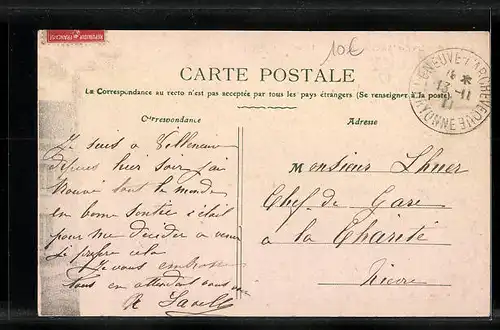 10€
CARTE POSTALE
La Correspondance au recto n'est pas acceptée par tous les pays étrangers (Se renseigner à la poste).
Correspondance
Adresse
VILLENEUVE-L'ARCHEVEQUE
YONNE
Je suis à Villeneuve
depuis hier soir j'ai
trouvé tout le monde
en bonne santée c'était
pour me décider a venir
je préfère cela
Je vous embrasse
tous en attendant
Monsieur
Chef de Gare
a la Charité
Nièvre